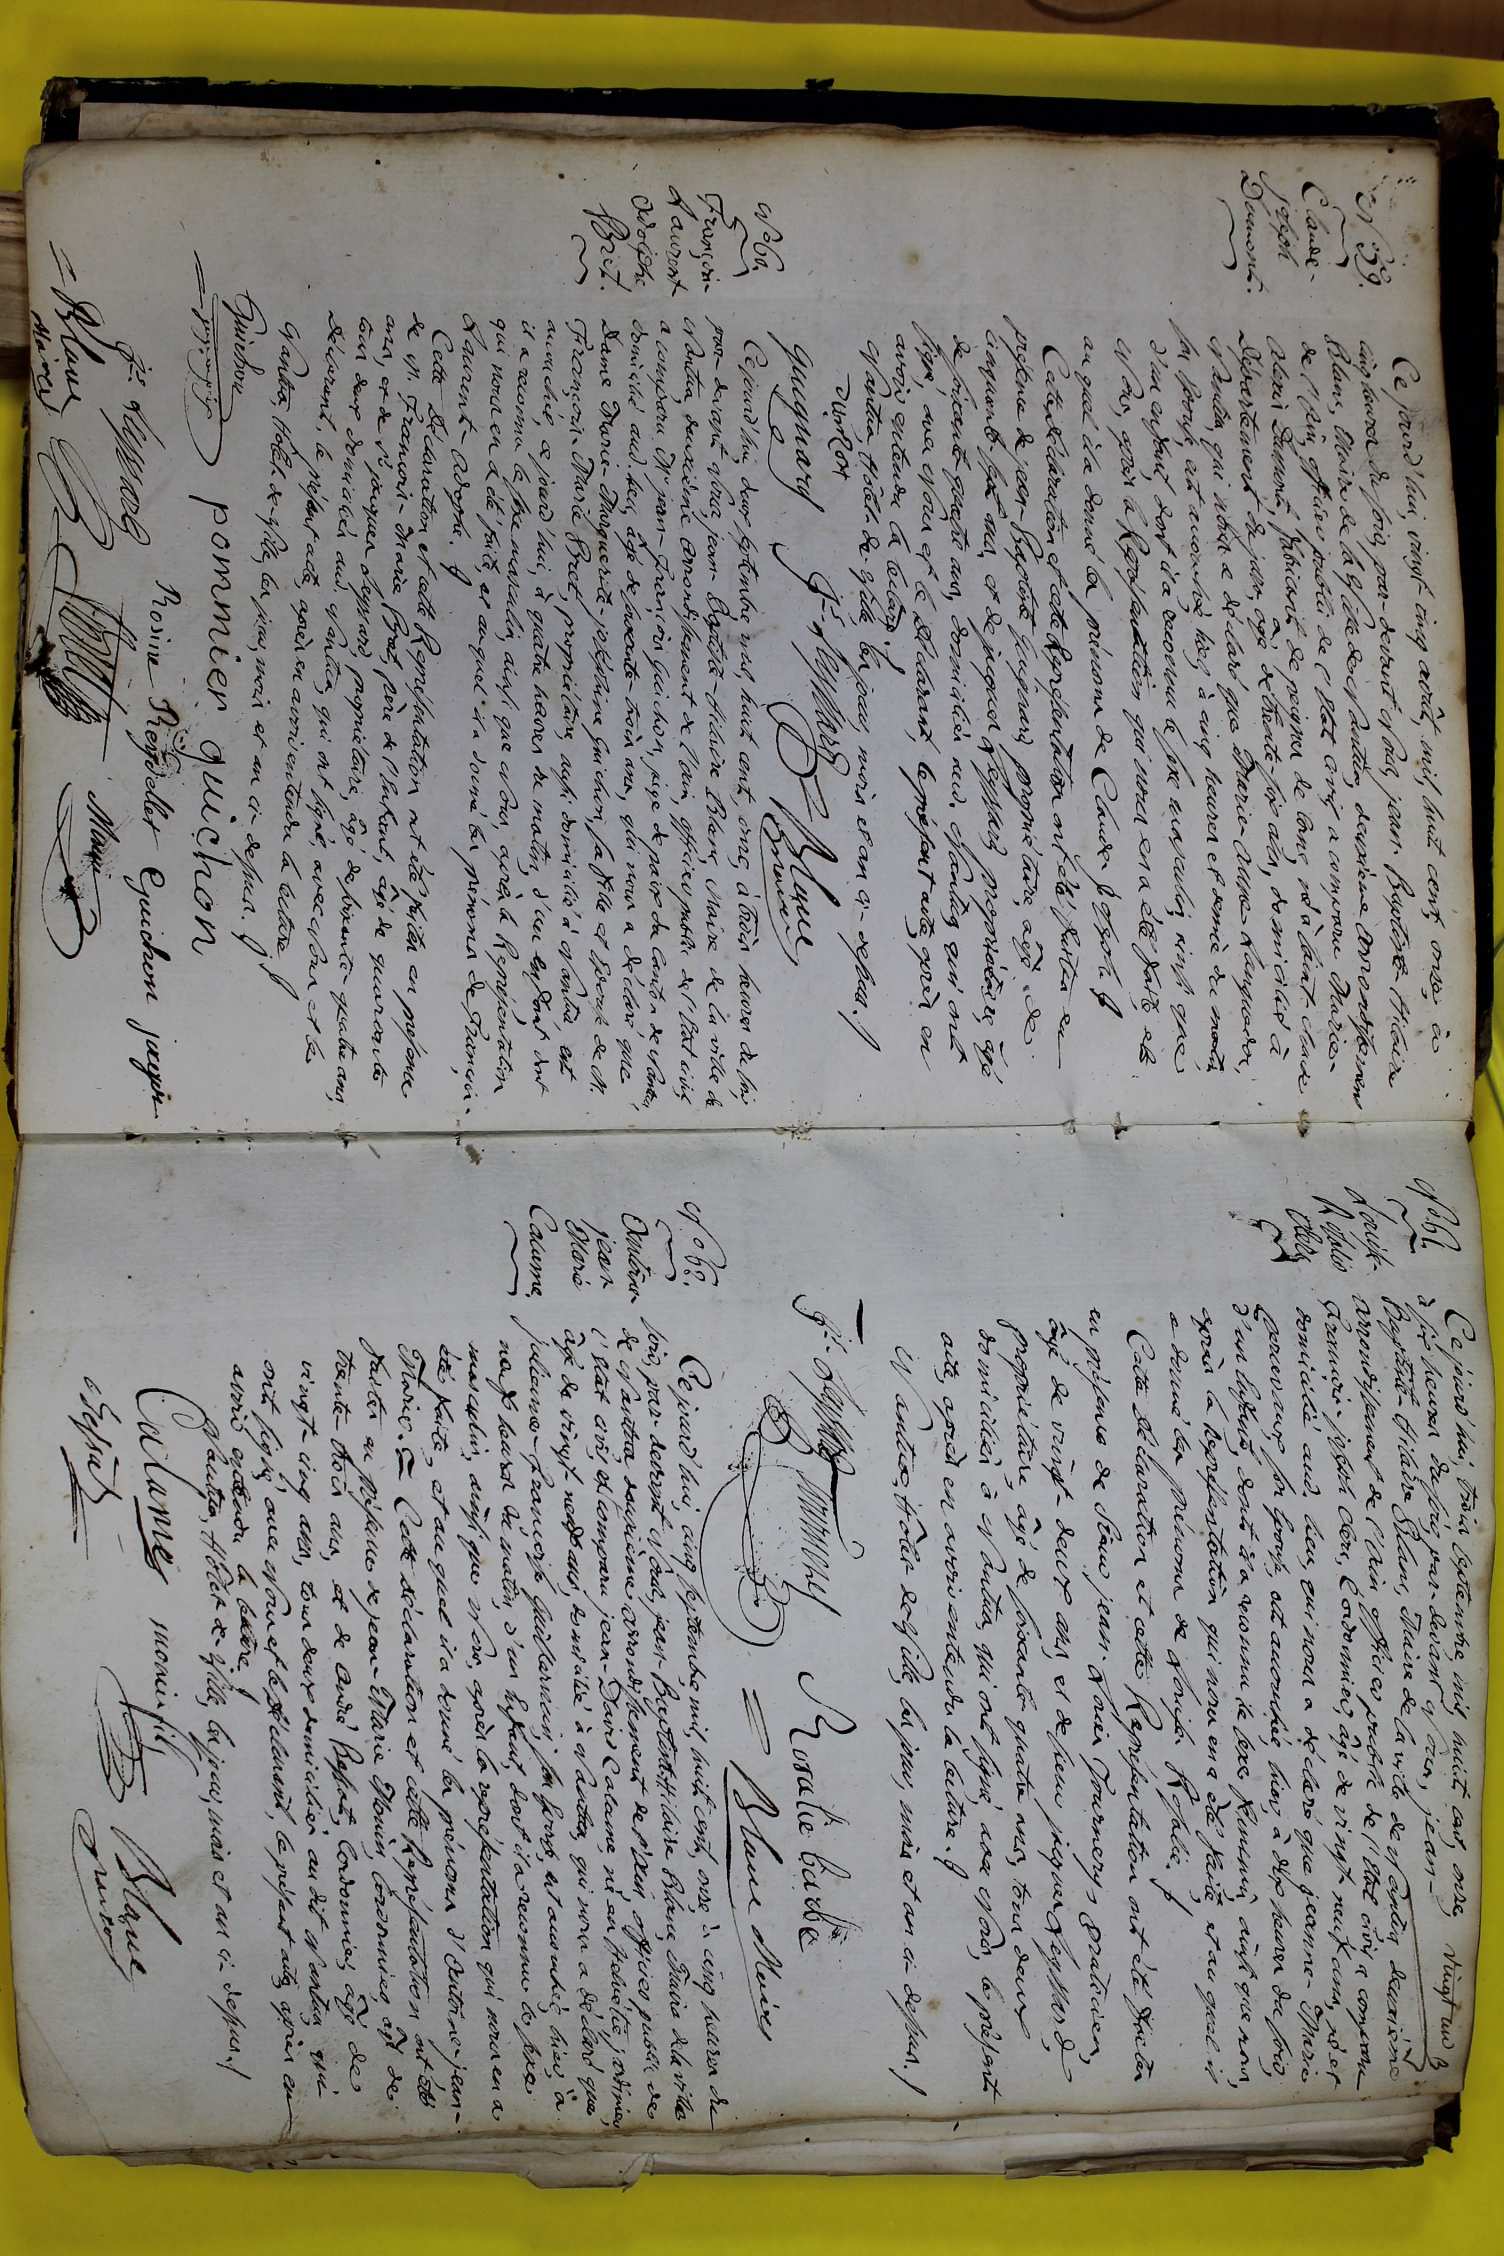 N.° 59.
Claude-
Joseph
Dumont.
Ce jourd'hui, vingt cinq août, mil, huit cent, onze, à
cinq heures du soir, par-devant Nous, jean-Baptiste-Hilaire
Blanc, Maire de la Ville de Nantua, deuxième arrondissement
de l'Ain, officier public de l'Etat civil, a comparu Marie-
Dumont, fabricant de peignes de corne, né à Saint-Claude
Département du jura, âgé de trente six ans, domicilié à
Nantua, qui nous a déclaré que Marie-Anne
son épouse, est accouchée hier, à cinq heures et demie du matin
d'un enfant, dont il a reconnu le sexe masculin, ainsi que
Nous, après la Représentation qui nous en a été faite et
au quel il a donné les prénoms de Claude-Joseph.
Cette déclaration et cette Représentation ont été faites en
présence de jean-Baptiste guignard, propriétaire, âgé de
cinquante sept ans, et de jacques Neyssard, propriétaire, âgé
de soixante quatre ans, domiciliés aud. Nantua, qui ont
signé, avec Nous et le Déclarant, le présent acte, après en
avoir entendu la lecture.
Nantua, Hôtel-de-Ville, les jour, mois et an ci-dessus.
Dumont
guignard
Blanc
N.° 60.
François-
Laurent-
Adolphe
Bret.
Ce jourd'hui, deux septembre, mil, huit cent, onze, à trois heures du soir
par-devant Nous, jean-Baptiste-Hilaire Blanc, Maire de la ville de
Nantua, deuxième arrondissement de l'Ain, officier public de l'Etat civil,
a comparu Mr. jean-François Guichon, juge de paix du canton de Nantua,
domicilié aud. lieu, âgé de soixante-trois ans, qui nous a déclaré que
Dame Marie-Marguerite-joséphine Guichon, sa fille et épouse de M.
François-Marie Bret, propriétaire, aussi domicilié à Nantua, est
accouchée, ce jourd'hui, à quatre heures du matin, d'un enfant dont
il a reconnu le sexe masculin, ainsi que Nous, après la Représentation
qui nous en a été faite, et auquel il a donné les prénoms de François-
Laurent-Adolphe.
Cette Déclaration et cette Représentation ont été faites en présence
de M. François-Marie Bret, père de l'enfant, âgé de quarante
ans, et de Sr. jacques Neyssard, propriétaire, âgé de soixante-quatre ans,
tous deux domiciliés aud. Nantua, qui ont signé, avec Nous et le
Déclarant, le présent acte, après en avoir entendu la lecture.
Nantua, Hôtel-de-Ville, les jour, mois et an ci-dessus.
Guichon
pommier guichon
Rosine Reydellet Guichon
Blanc
Maire
Vingt un
N.° 61.
Louise-
Rosalie
Ce jourd'hui, trois septembre, mil, huit cent, onze,
à six heures du soir, par-devant Nous, jean-
Baptiste-Hilaire Blanc, Maire de la ville de Nantua, deuxième
arrondissement de l'Ain, officier public de l'Etat civil, a comparu
Cordonnier, âgé de vingt neuf ans, né et
domicilié aud. lieu, qui nous a déclaré que jeanne-Marie
son épouse, est accouchée hier, à dix heures du soir,
d'un Enfant, dont il a reconnu le sexe féminin, ainsi que nous,
après la Représentation qui nous en a été faite, et au quel il
a donné les prénoms de Louise Rosalie.
Cette déclaration et cette Représentation ont été faites
en présence de Sieur jean-Louis Tournery, praticien,
âgé de vingt-deux ans, et de sieur jacques Neyssard,
propriétaire, âgé de soixante quatre ans, tous deux
domiciliés à Nantua, qui ont signé, avec Nous, le présent
acte, après en avoir entendu la lecture.
Nantua, Hôtel de Ville, les jour, mois et an ci-dessus.
Tournery
Rosalie
Blanc Maire
N.° 62.
Antoine
jean
Marie
Calame.
Ce jourd'hui, cinq septembre, mil, huit cent, onze, à cinq heures du
soir, par-devant Nous, jean-Baptiste-Hilaire Blanc, Maire de la ville
de Nantua, deuxième arrondissement de l'Ain, officier public de
l'Etat civil, est comparu jean-David Calame, né en Helvétie, jardinier,
âgé de vingt neuf ans, domicilié à Nantua, qui nous a déclaré que
julienne-françoise son épouse, est accouchée, hier, à
neuf heures du matin, d'un Enfant, dont il a reconnu le sexe
masculin, ainsi que Nous, après la représentation qui nous en a
été faite, et au quel il a donné les prénoms d'Antoine-jean-
Marie. Cette déclaration et cette Représentation ont été
faites en présence de jean-Marie Monin, cordonnier, âgé de
trente-trois ans, et de André Cordonnier, âgé de
vingt-cinq ans, tous deux domiciliés au dit Nantua, qui
ont signé, avec Nous et le Déclarant, le présent acte, après en
avoir entendu la lecture.
Nantua, Hôtel-de-Ville, les jour, mois et an ci-dessus.
Calame monin fils Blanc